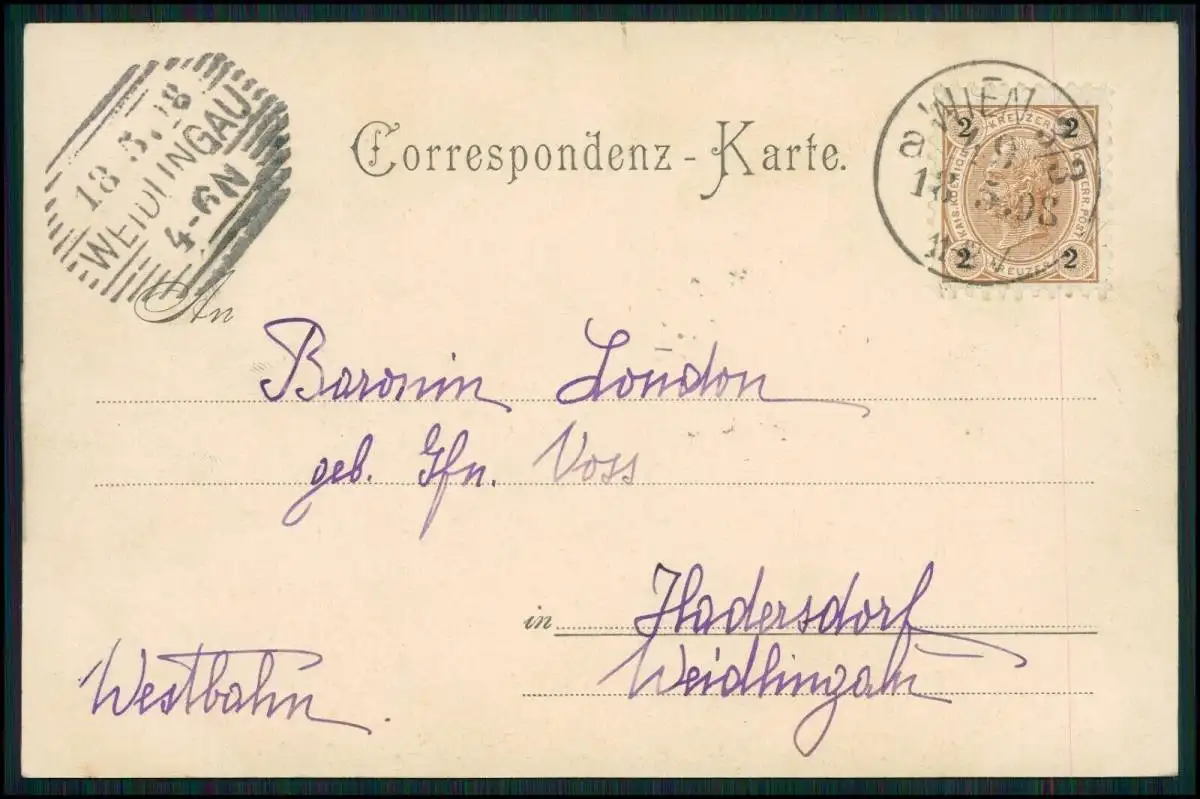 18.5.98
WEIDLINGAU
4-6N
Correspondenz-Karte.
a WIEN 3/3
18 5.98
2 KREUZER 2
KAIS. KOENIGL. OESTERR. POST
2 KREUZER 2
An
Baronin Loudon
geb. Gfn. Voss
in Hadersdorf
Weidlingau
Westbahn.